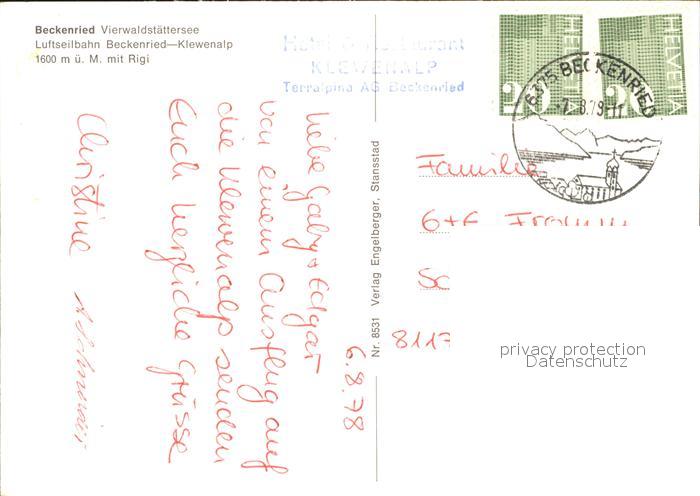 Beckenried Vierwaldstättersee
Luftseilbahn Beckenried—Klewenalp
1600 m ü. M. mit Rigi
Hotel Restaurant
KLEWENALP
Terralpina AG Beckenried
HELVETIA
20
HELVETIA
20
6375 BECKENRIED
-7.8.79-11
6.8.78
Liebe Gaby + Edgar
von einem Ausflug auf
die Klewenalp senden
Euch herzliche Grüsse
Christine
Nr. 8531 Verlag Engelberger, Stansstad
Familie
G+E
8117
privacy protection
Datenschutz